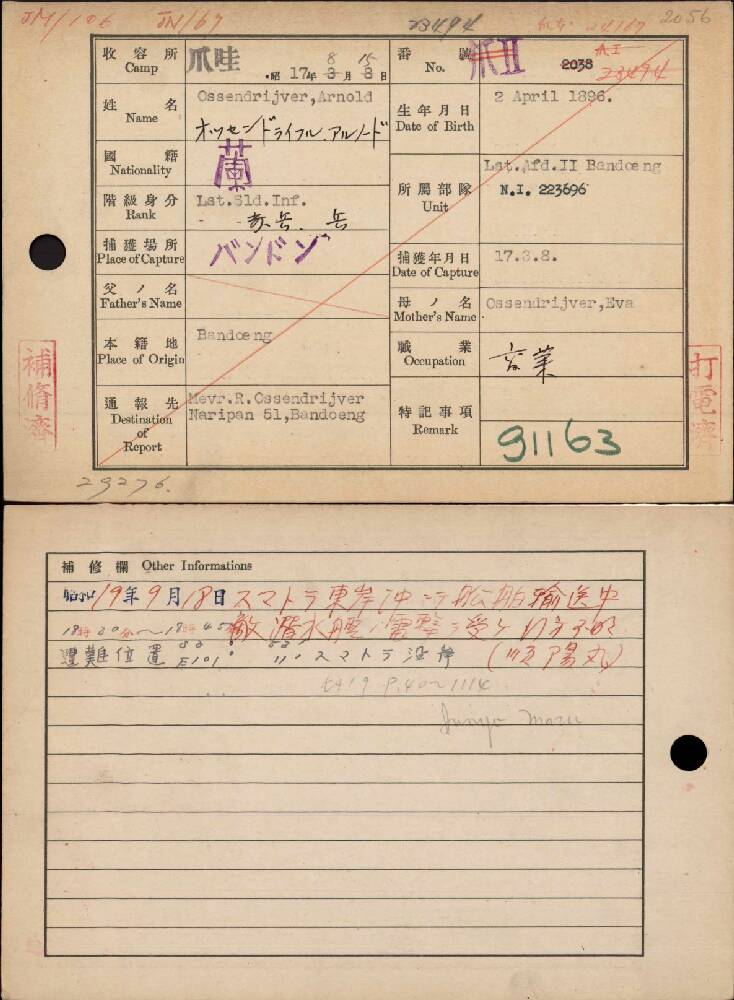 JM/106 JN/69 23494 24167 2056
收容所 Camp 爪哇 昭17年8月15日 番號 No. 爪II 2038 AI 23494
姓名 Name Ossendrijver,Arnold
オッセンドライフル アルノード
生年月日 Date of Birth 2 April 1896.
國籍 Nationality 蘭
階級身分 Rank Lst.Sld.Inf.
所屬部隊 Unit Lst.Afd.II Bandoeng
N.I. 223696
捕獲場所 Place of Capture バンドン
捕獲年月日 Date of Capture 17.3.8.
父ノ名 Father's Name
母ノ名 Mother's Name Ossendrijver,Eva
本籍地 Place of Origin Bandoeng
職業 Occupation
通報先 Destination of Report Mevr.R.Ossendrijver
Naripan 51,Bandoeng
特記事項 Remark 91163
補脩濟
打電濟
29276.
補修欄 Other Informations
昭和19年9月18日スマトラ東岸沖ニテ船舶輸送中
18時20分〜18時45分敵潜水艦ノ雷撃ヲ受ケ行方不明
遭難位置 E101° 11' スマトラ (順陽丸)
Junyo Maru